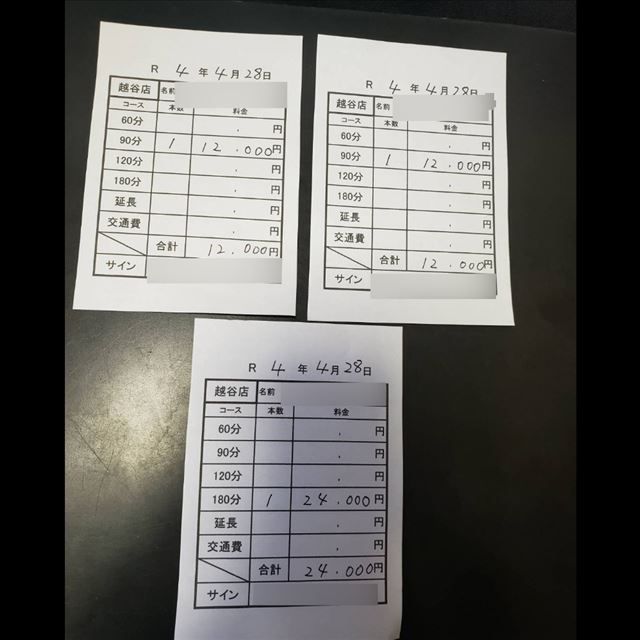 R 4 年 4 月 28 日
越谷店 名前
コース 本数 料金
60分 . 円
90分 1 12.000円
120分 . 円
180分 . 円
延長 . 円
交通費 . 円
合計 12.000円
サイン
R 4 年 4 月 28 日
越谷店 名前
コース 本数 料金
60分 . 円
90分 1 12.000円
120分 . 円
180分 . 円
延長 . 円
交通費 . 円
合計 12.000円
サイン
R 4 年 4 月 28 日
越谷店 名前
コース 本数 料金
60分 . 円
90分 . 円
120分 . 円
180分 1 24.000円
延長 . 円
交通費 . 円
合計 24.000円
サイン